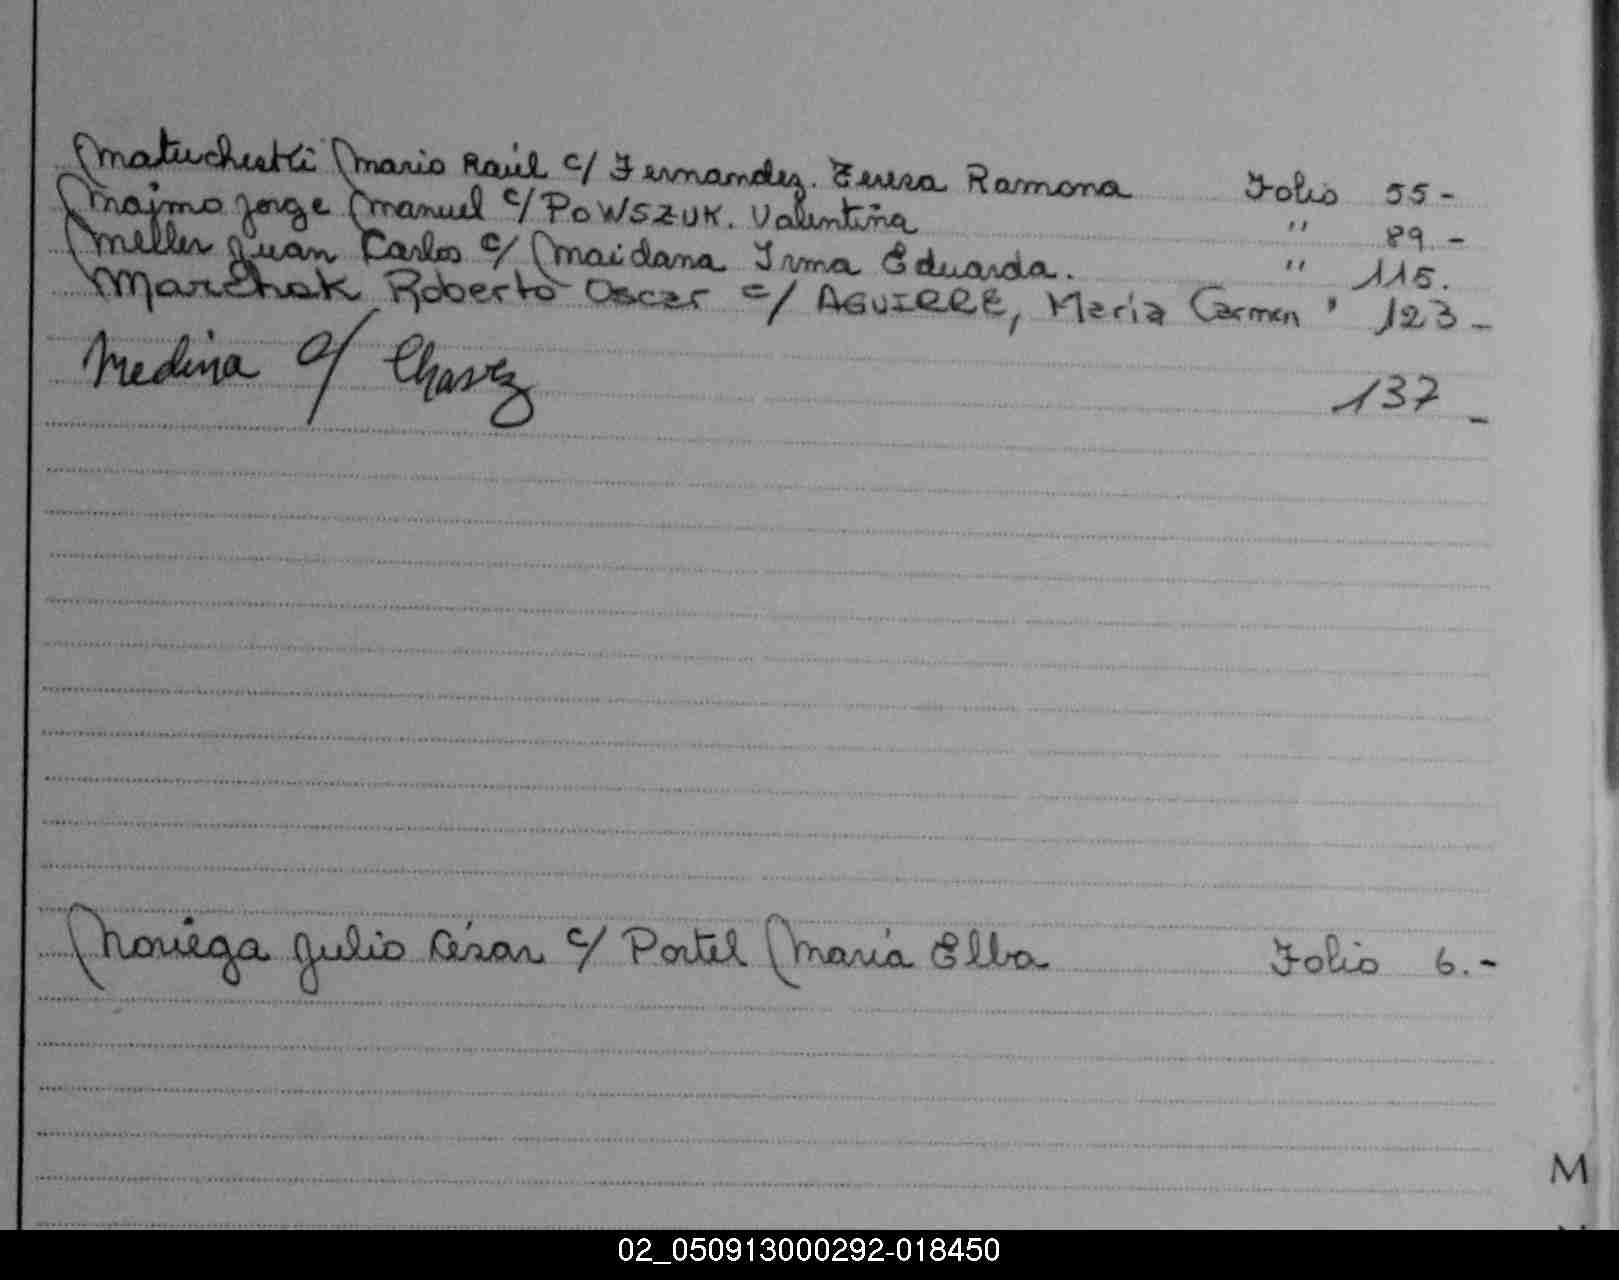 Matucheski Mario Raúl c/ Fernandez. Teresa Ramona Folio 55-
Majmo Jorge Manuel c/ POWSZUK. Valentina " 89.-
Meller Juan Carlos c/ Maidana Irma Eduarda. " 115.
Marchak Roberto Oscar c/ AGUIRRE, María Carmen " 123-
Medina c/ Chavez 137-
Noriega Julio César c/ Portel María Elba Folio 6.-
M
02_050913000292-018450